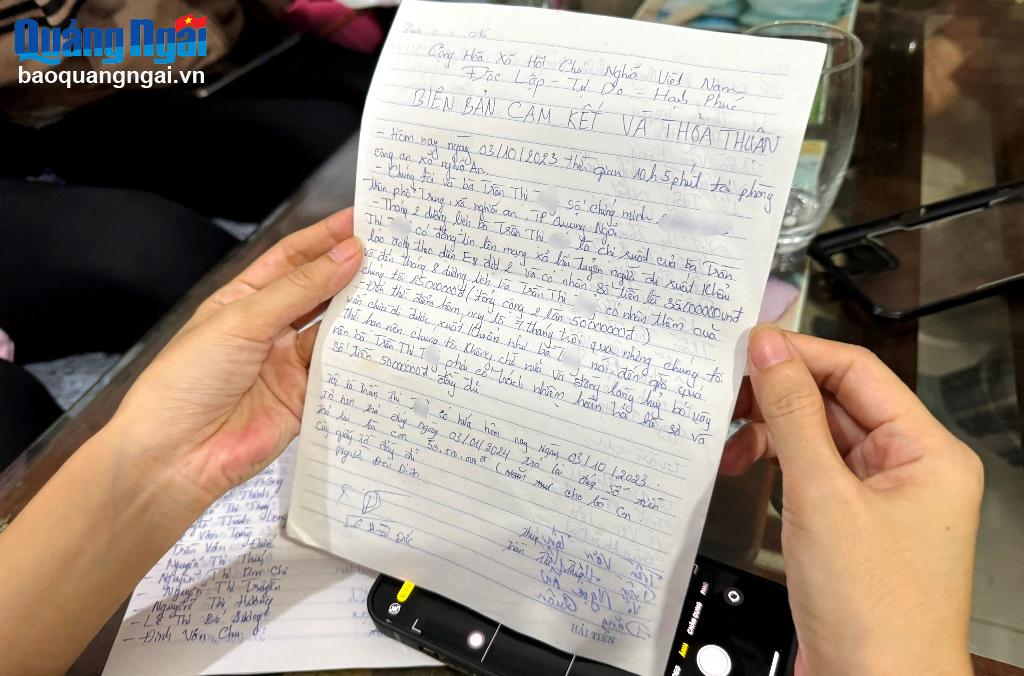 Quảng Ngãi
baoquangngai.vn
Cộng Hòa Xã Hội Chủ Nghĩa Việt Nam
Độc Lập - Tự Do - Hạnh Phúc
BIÊN BẢN CAM KẾT VÀ THỎA THUẬN
- Hôm nay ngày 03/10/2023 thời gian 10h5phút tại phòng
công an xã nghĩa An.
- Chúng tôi và bà Trần Thị số chứng minh
thôn phổ Trung, xã nghĩa an, TP Quảng Ngãi
- Tháng 2 dương lịch bà Trần Thị là chị ruột của bà Trần
Thị có đăng tin lên mạng xã hội tuyển người đi xuất khẩu
lao động theo diện E8 đợt 2 và có nhận số tiền là 35000000vnđ
và đến tháng 8 dương lịch bà Trần Thị có nhận thêm của
chúng tôi 15.000000đ (tổng cộng 2 lần 50000000đ)
- Đến thời điểm hôm nay là 7 tháng trôi qua nhưng chúng tôi
vẫn chưa đi được xuất khẩu như bà nói đến giờ quá
thời hạn nên chúng tôi không chờ nữa và đồng lòng hủy bỏ vậy
nên bà Trần Thị phải có trách nhiệm hoàn trả hồ sơ và
số tiền 50000000đ đầy đủ
Tôi là Trần Thị có hứa hôm nay ngày 03/10/2023.
Tôi hẹn trả đúng ngày 03/01/2024 trả lại tổng số tiền
trả lại bà con 50.000.000đ cho bà con.
Cùng giấy tờ đầy đủ.
Người Đại Diện
HẢI TIẾN
Trần Văn Được
Nguyễn Thị Thúy
- Nguyễn Thị Kim Chi
- Nguyễn Thị Truyền
- Nguyễn Thị Hường
- Lê Thị Bé Sương
- Đinh Văn Chu